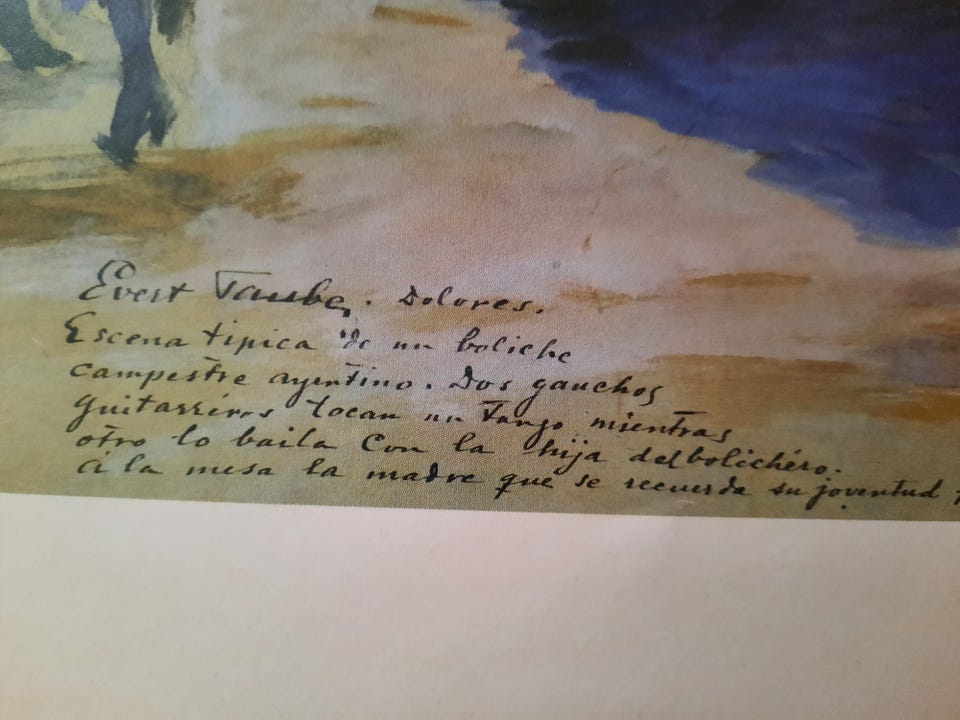 Evert Taube. Dolores.
Escena tipica de un boliche
campestre argentino. Dos gauchos
guitarréros tocan un Tango mientras
otro lo baila con la hija del bolichéro.
á la mesa la madre que se recuerda su joventud